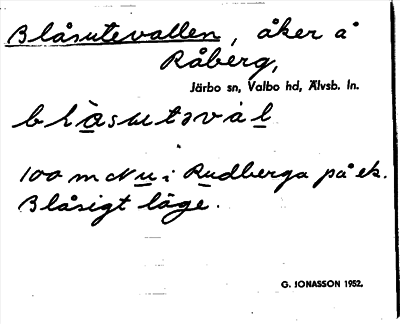 Blåsutevallen, åker å
Råberg,
Järbo sn, Valbo hd, Älvsb. ln.
blåsutəvál
100 m NV i Rudberga på ek.
Blåsigt läge.
G. JONASSON 1952.